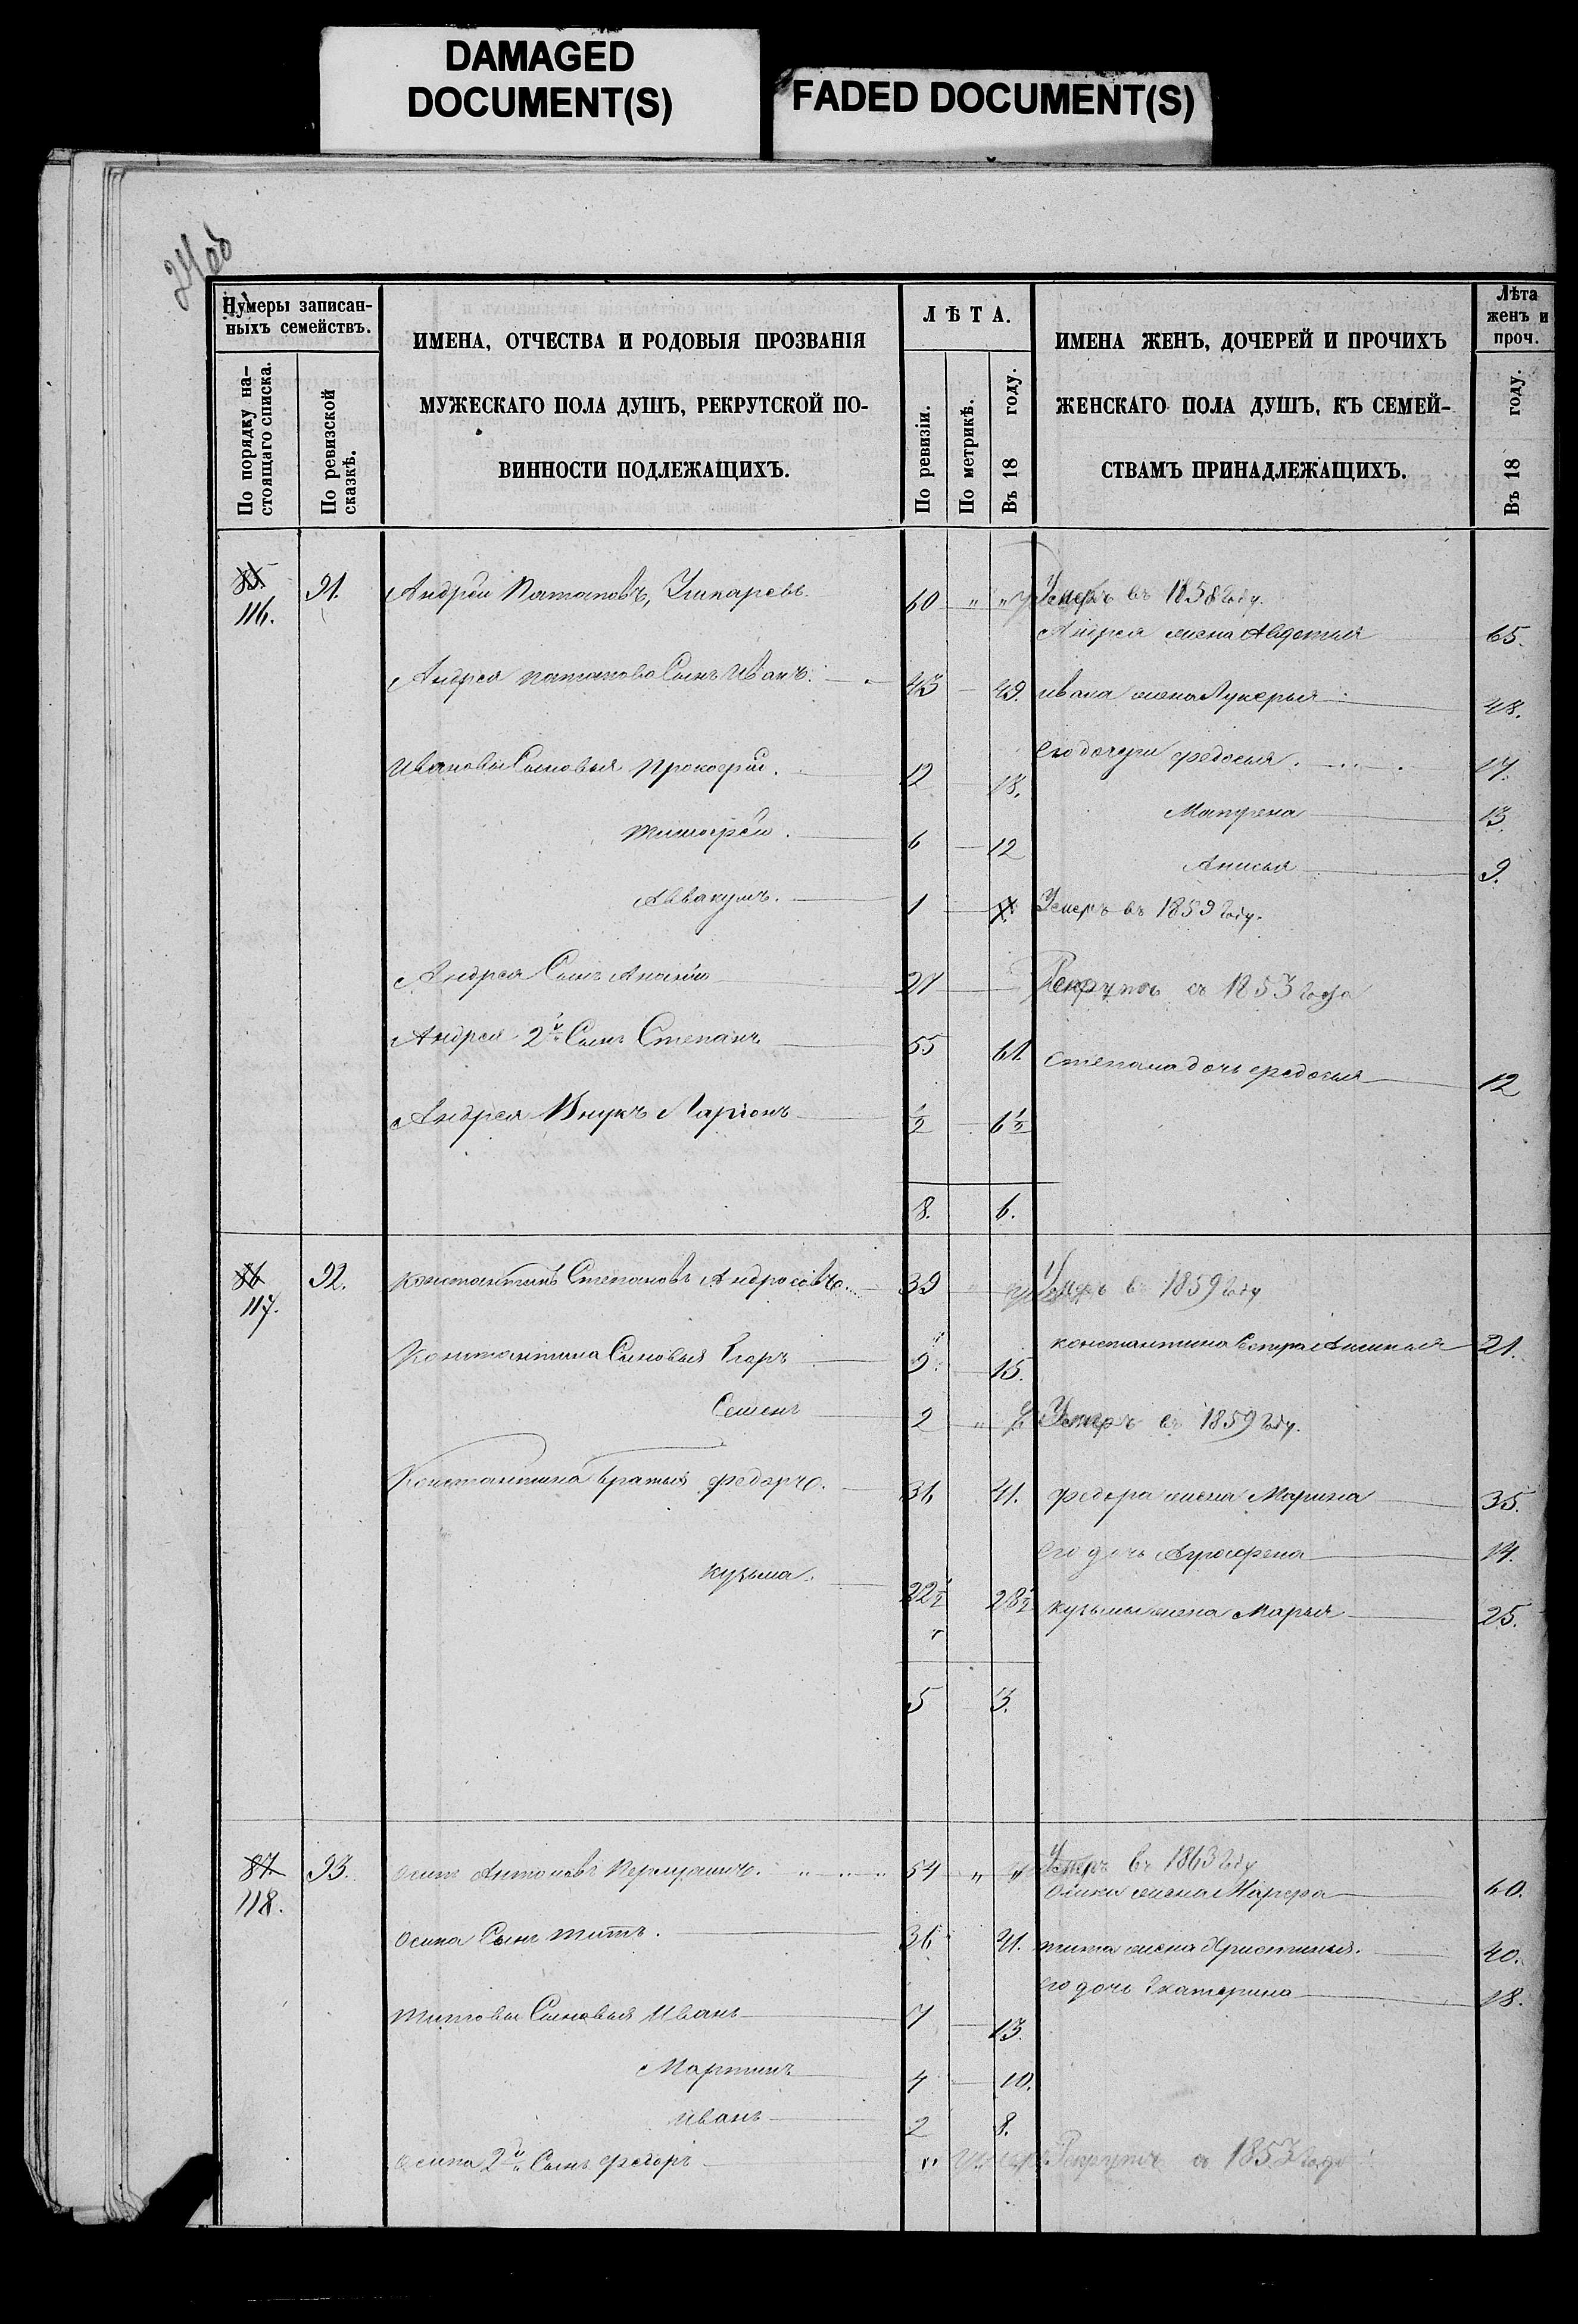 DAMAGED
DOCUMENT(S)
FADED DOCUMENT(S)
24об
Нумеры записан-
ныхъ семействъ.
По порядку на-
стоящаго списка.
По ревизской
сказкѣ.
ИМЕНА, ОТЧЕСТВА И РОДОВЫЯ ПРОЗВАНІЯ
МУЖЕСКАГО ПОЛА ДУШЪ, РЕКРУТСКОЙ ПО-
ВИННОСТИ ПОДЛЕЖАЩИХЪ.
ЛѢТА.
По ревизіи.
По метрикѣ.
Въ 18 году.
ИМЕНА ЖЕНЪ, ДОЧЕРЕЙ И ПРОЧИХЪ
ЖЕНСКАГО ПОЛА ДУШЪ, КЪ СЕМЕЙ-
СТВАМЪ ПРИНАДЛЕЖАЩИХЪ.
Лѣта
женъ и
проч.
Въ 18 году.
85
116. 91. Андрей Потаповъ, 60 " " Умеръ въ 1858 году.
Андрея жена Авдотья 65.
Андрея Потапова Сынъ Иванъ. 43 49. Ивана жена Лукерья 48.
Ивановы Сыновья Прокофій. 12 18. Его дочери Федосья 17.
Тимофей. 6 12 Матрена 13
Анисья 9.
Аввакумъ. 1 Умеръ въ 1859 году.
Андрея Сынъ Ананій 21 Рекрутъ съ 1853 года
Андрея 2й Сынъ Степанъ 55 61 Степана дочь Федосья 12
Андрея Внукъ Ларіонъ ½ 6½
8. 6.
86
117. 92. Константинъ Степановъ Андросовъ. 39 " Умеръ въ 1859 году
Константина Сыновья Егоръ 9. 15. Константина Сестра 21.
Семенъ 2 " Умеръ въ 1859 году.
Константина братья Федоръ. 36 41. Федора жена Марина 35.
Его дочь Агрофена 14.
Кузьма. 22½ 28½ Кузьмы жена Марья 25.
5 3.
87
118. 93. Осипъ Антоновъ 54 " " Умеръ въ 1863 году
Осипа жена Марфа 60.
Осипа Сынъ Титъ. 36 41. Тита жена Христинья. 40.
Его дочь Екатерина 18.
Титовы Сыновья Иванъ 7 13.
Мартинъ 4 10.
Иванъ 2 8.
Осипа 2й Сынъ Федоръ " Рекрутъ съ 1853 года